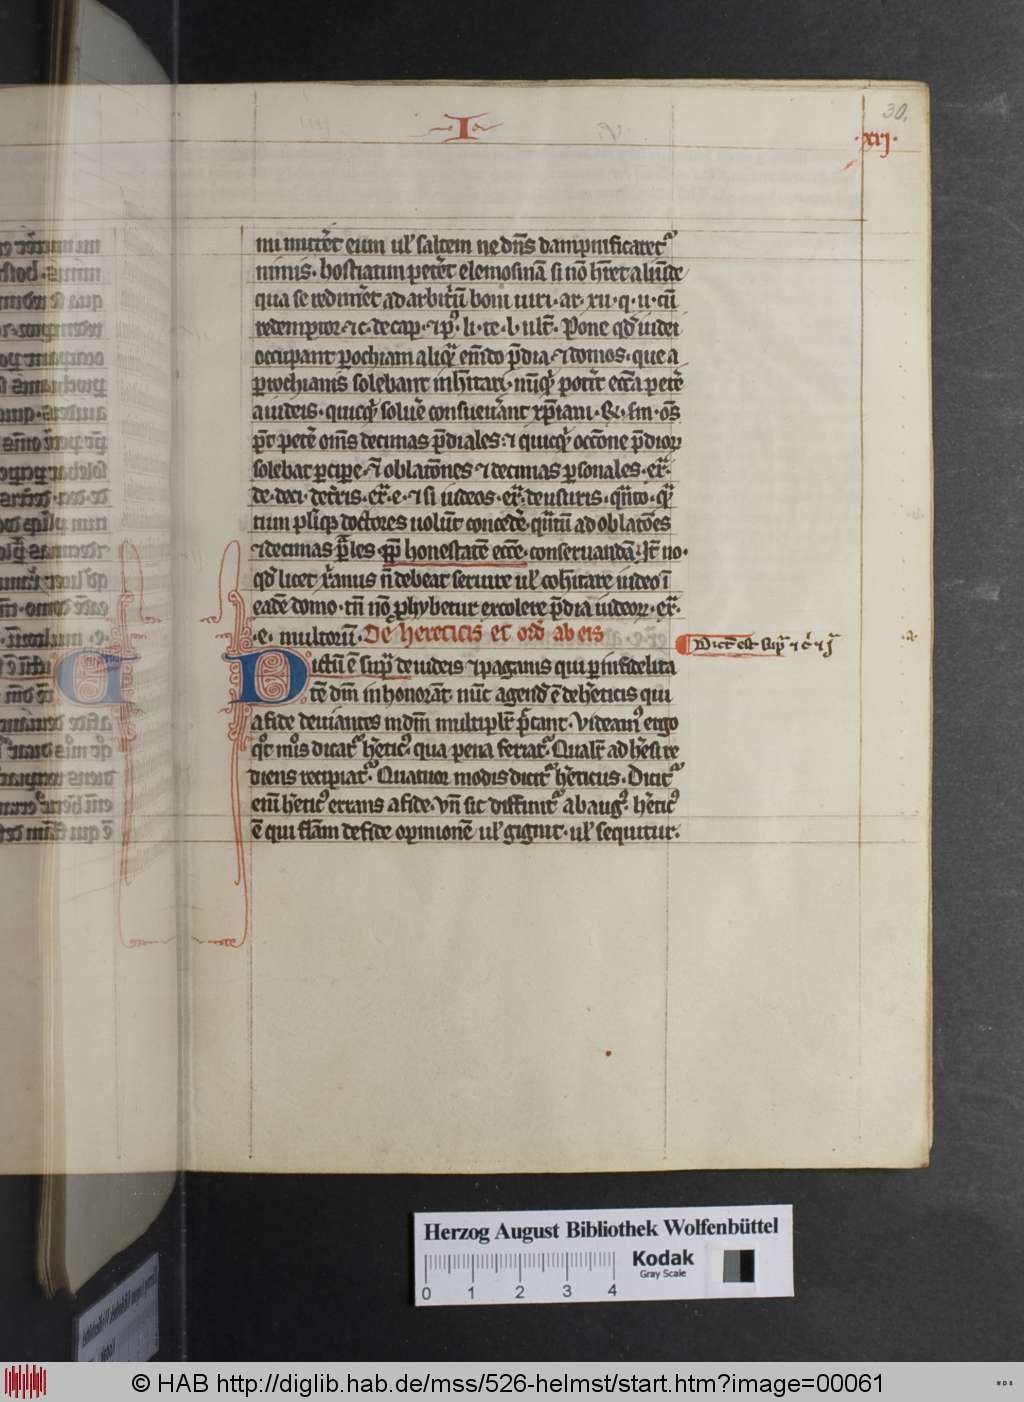 30.
I
.xxj.
mi mitteret eum ul' saltem ne dns dampnificaret'
nimis. hostiatim peteret elemosinā si nō hret aliūde
qua se redimeret ad arbitriū boni uiri. ar. xii. q. ii. cū
redemptor. ⁊ c. de cap. ⁊ pꝰ. li. re. l. ult. Pone qd iudei
occupant pochiam aliqͣ emēdo p̄dia ⁊ domos. que a
prochianis solebant inhītari. nūqͥ poterit ecc̄a petere
a iudeis. quicqͥ soluere consueuerant xp̄iani. Et sm oēs
pōt petere oms decimas p̄diales. ⁊ quicqͥ occōne p̄dior
solebat pcipe. ⁊ oblatōnes ⁊ decimas psonales. ex.
de. deci. de tris. ex. e. ⁊ si iudeos. ex. de usuris. qnto. qͣ
tum pliq doctores uolūt concedere. qntū ad oblatōes
⁊ decimas p̄les pp honestatē ecc̄e. conseruandā. Jt no.
qd licet xanus n debeat seruire ul' cohītare iudeo ī
eadē domo. tn nō phybetur excolere p̄dia iudeor. ex.
.e. multorū. De hereticis et ord ab eis
Dictū ē supͣ de iudeis ⁊ paganis qui p infidelita
tē dm inhonorāt. nūc agend ē de hereticis qui
a fide deuiantes in dm multiplr p̄cant. Videamꝰ ergo
qt mōis dicat' hereticꝰ. qua pena feriat'. Qualr ad heresī re
diens recipiat'. Quatuor modis dicit' hereticus. Dicit'
enī hereticꝰ errans a fide. Vn sic diffinit' ab augꝰ. hereticꝰ
ē qui flām de fide opinionē ul' gignit. ul' sequitur.
Dictū est supͣ ⁊ c̄ ⁊ j
.a.
Herzog August Bibliothek Wolfenbüttel
Kodak
Gray Scale
0 1 2 3 4
© HAB http://diglib.hab.de/mss/526-helmst/start.htm?image=00061